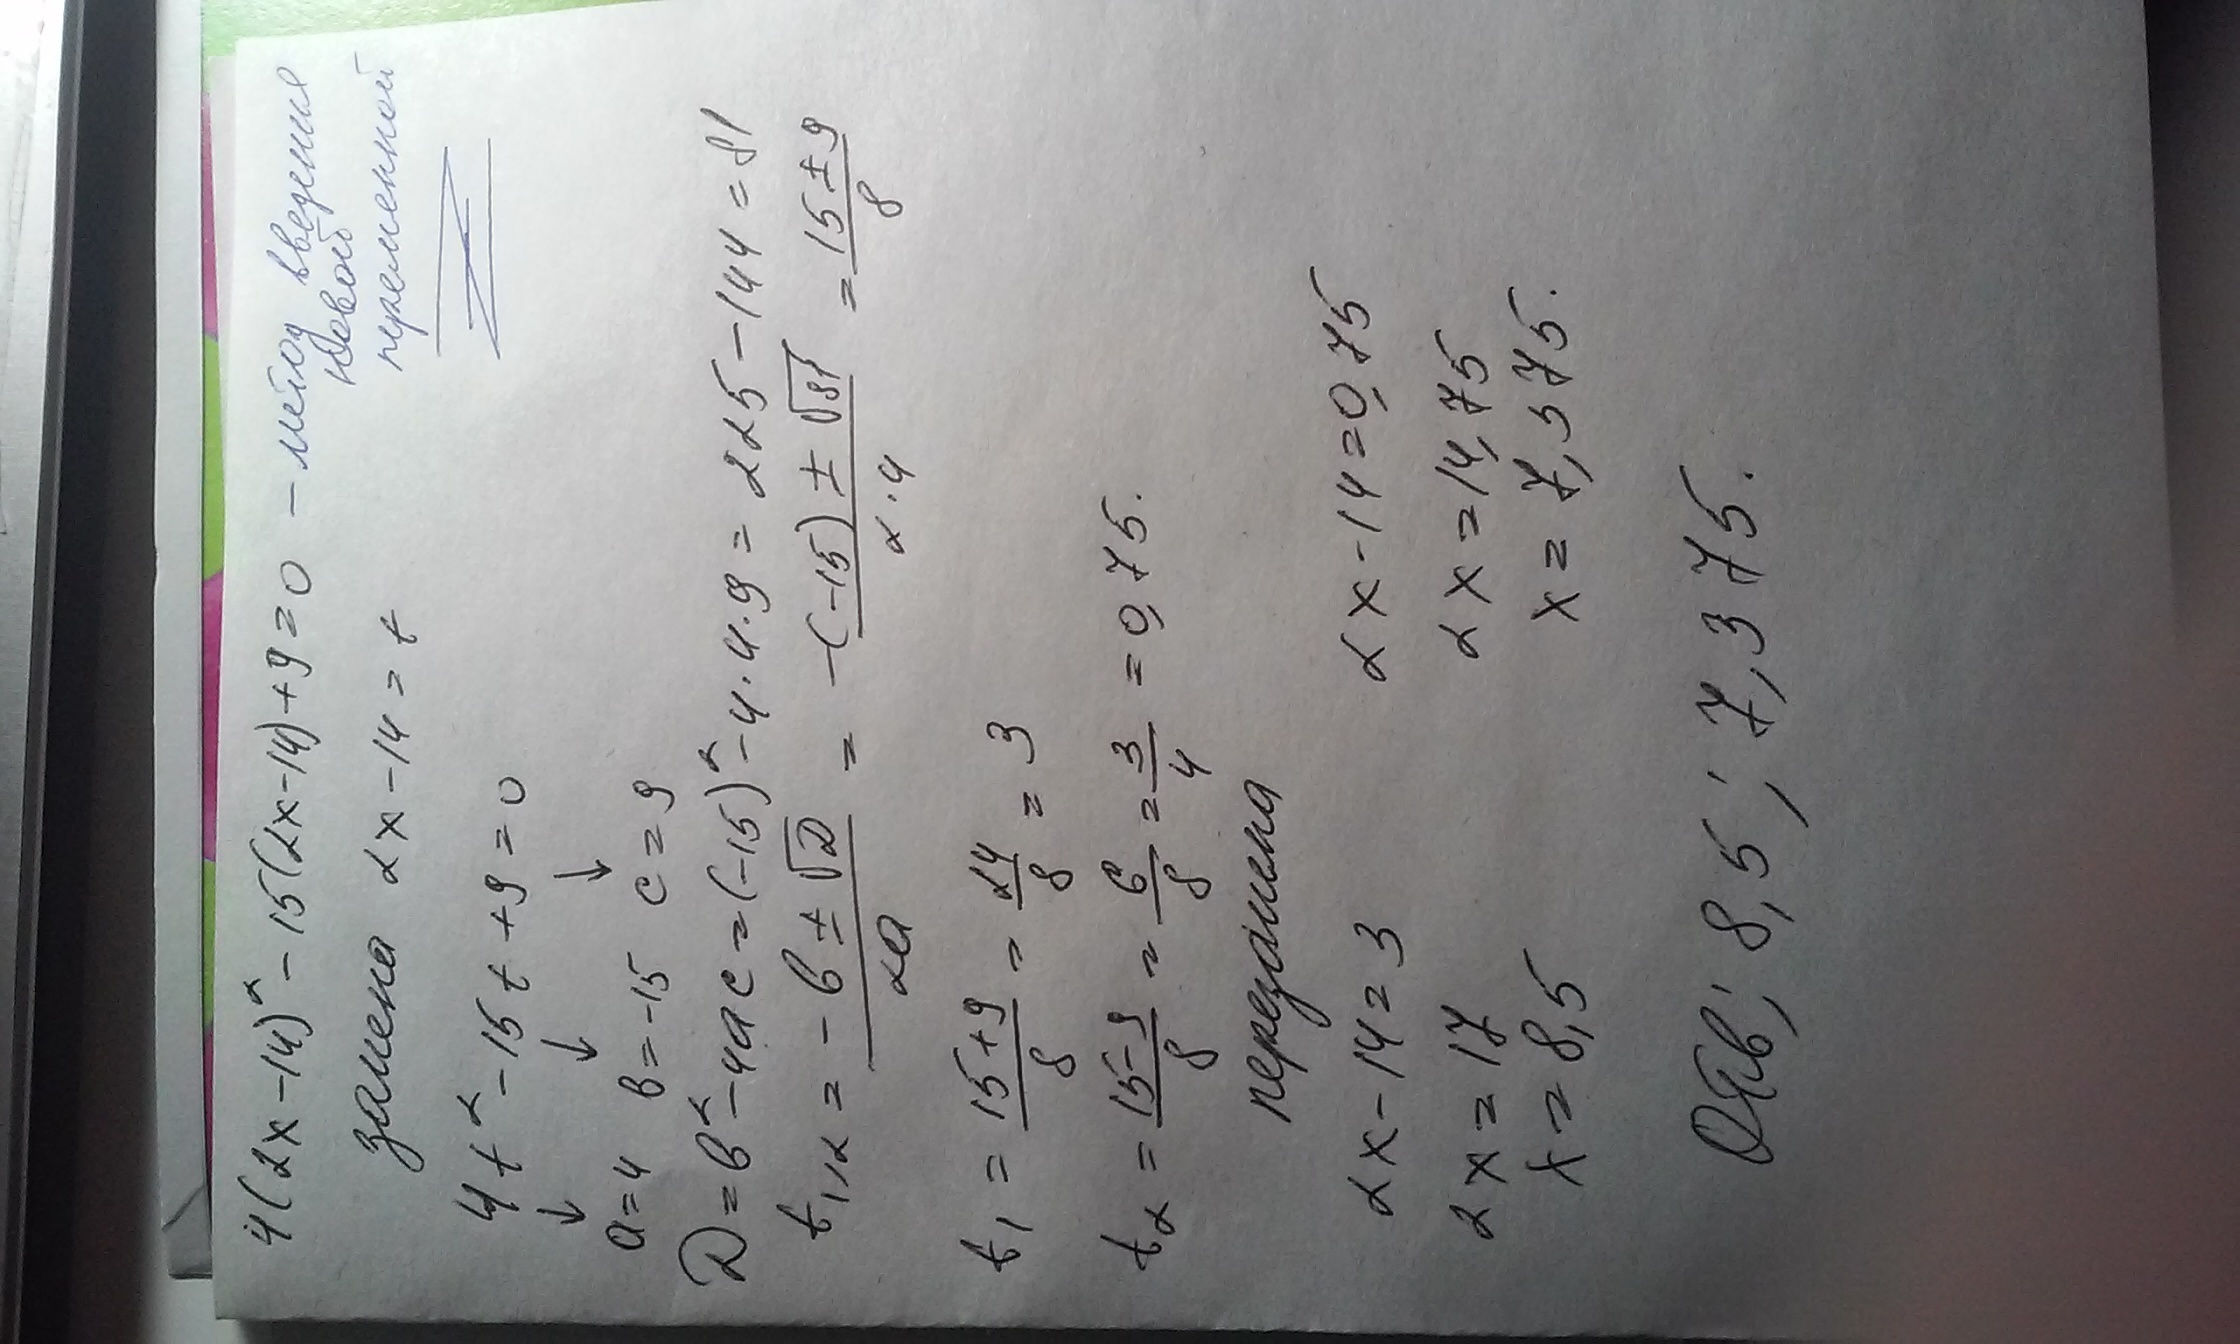 4(2x-14)² - 15(2x-14)+9=0 - метод введения
новой
переменной
замена 2x-14=t
4t² - 15t + 9 = 0
↓ ↓ ↓
a=4 b=-15 c=9
D=b²-4ac=(-15)²-4·4·9=225-144=81
t₁,₂ = \frac{-b ± √D}{2a} = \frac{-(-15) ± √81}{2·4} = \frac{15±9}{8}
t₁ = \frac{15+9}{8} = \frac{24}{8} = 3
t₂ = \frac{15-9}{8} = \frac{6}{8} = \frac{3}{4} = 0,75.
перезамена
2x-14=3 2x-14=0,75
2x=17 2x=14,75
x=8,5 x=7,375.
Отв; 8,5; 7,375.